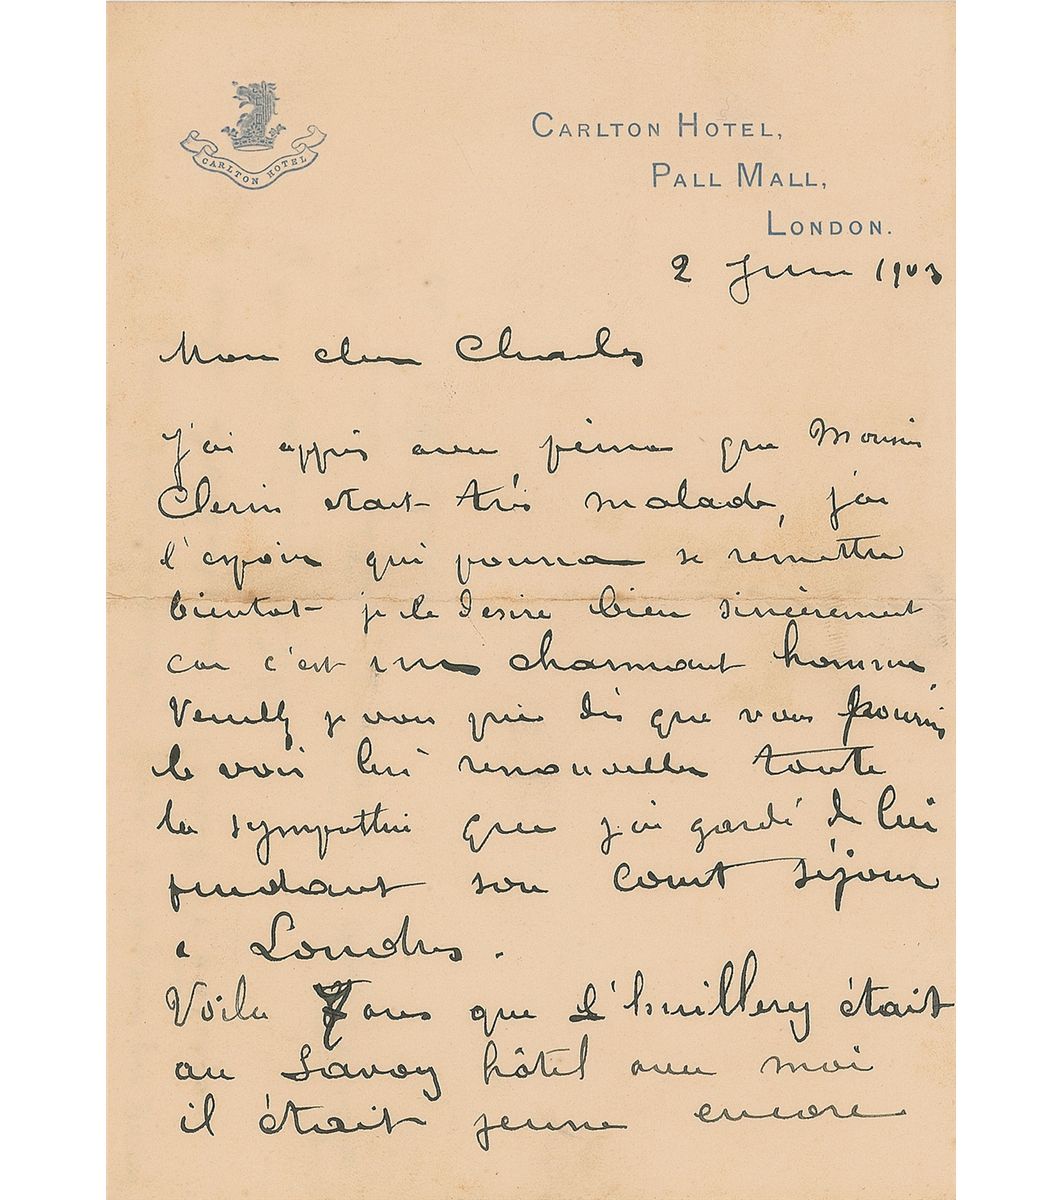 CARLTON HOTEL
CARLTON HOTEL,
PALL MALL,
LONDON.
2 Juin 1903
Mon cher Charles
J'ai appris avec peine que Monsieur
Clerin etait très malade, j'ai
l'espoir qui pourra se remettre
bientot je le desire bien sincèrement
car c'est un charmant homme
Veuillez je vous prie dès que vous pourrez
le voir lui renouveller toute
la sympathie que j'ai gardé de lui
pendant son court séjour
a Londres.
Voila 7 ans que L'huillery était
au Savoy hôtel avec moi
il était jeune encore